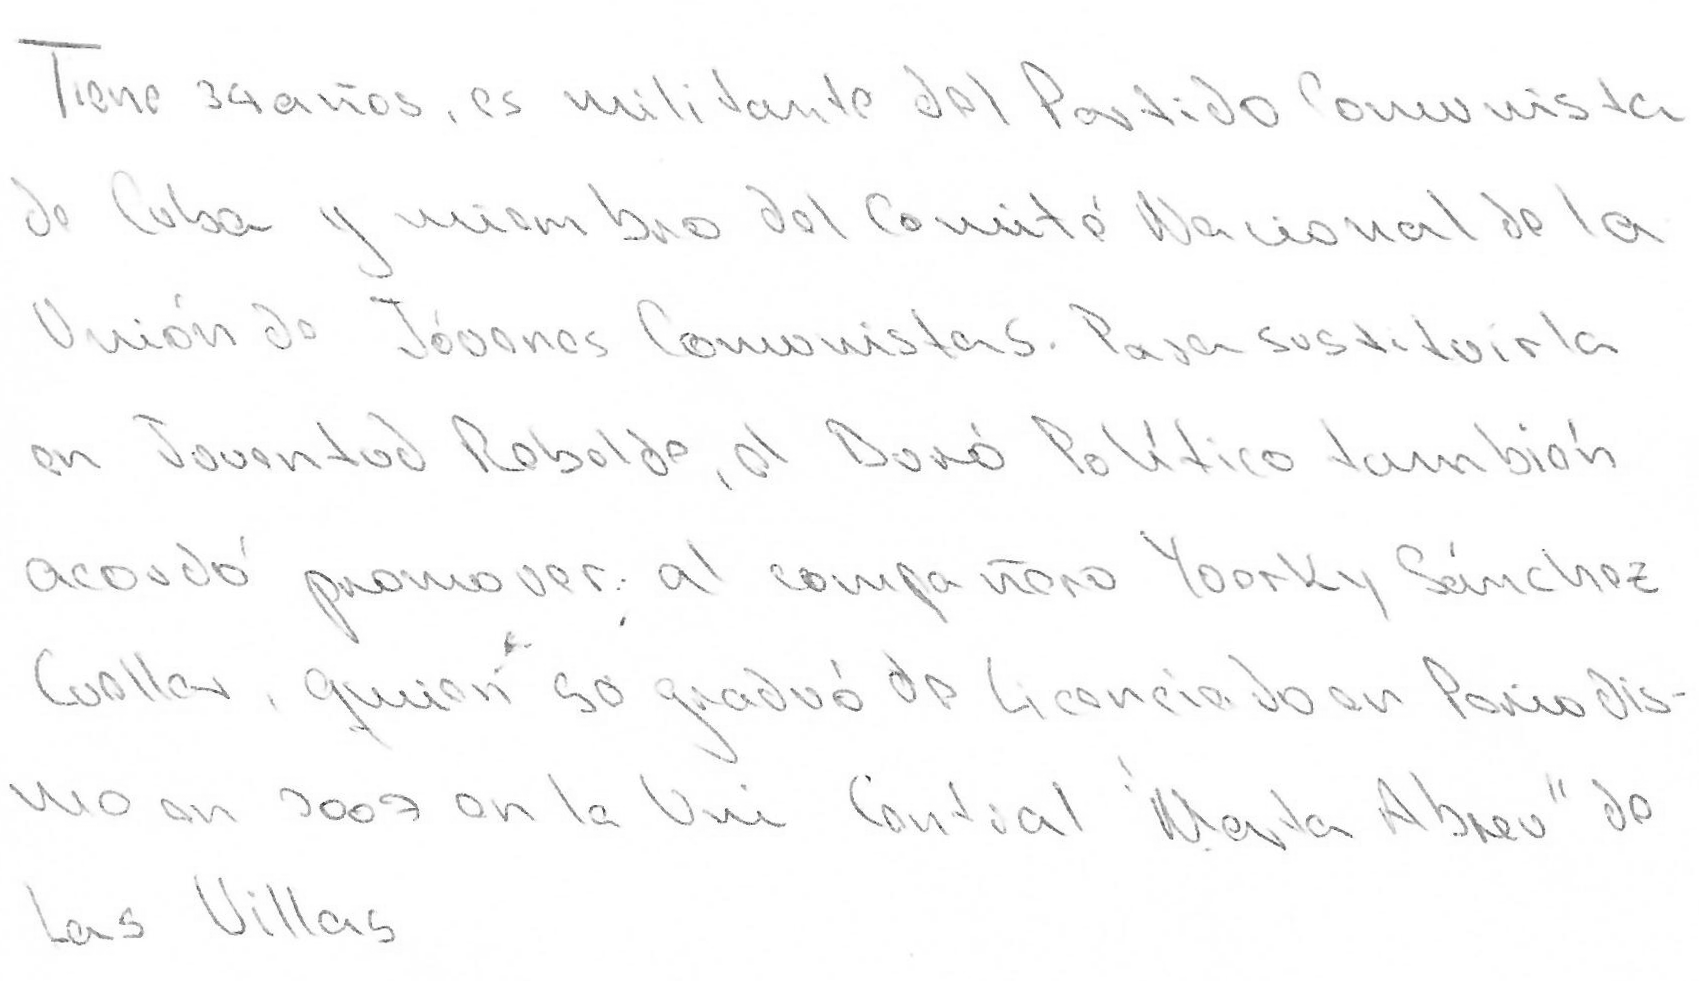 Tiene 34 años, es militante del Partido Comunista
de Cuba y miembro del Comité Nacional de la
Unión de Jóvenes Comunistas. Para sustituirla
en Juventud Rebelde, el Buró Político también
acordó promover: al compañero Yoerky Sánchez
Cuellar, quien se graduó de Licenciado en Periodis-
mo en 2007 en la Uni Central "Marta Abreu" de
Las Villas